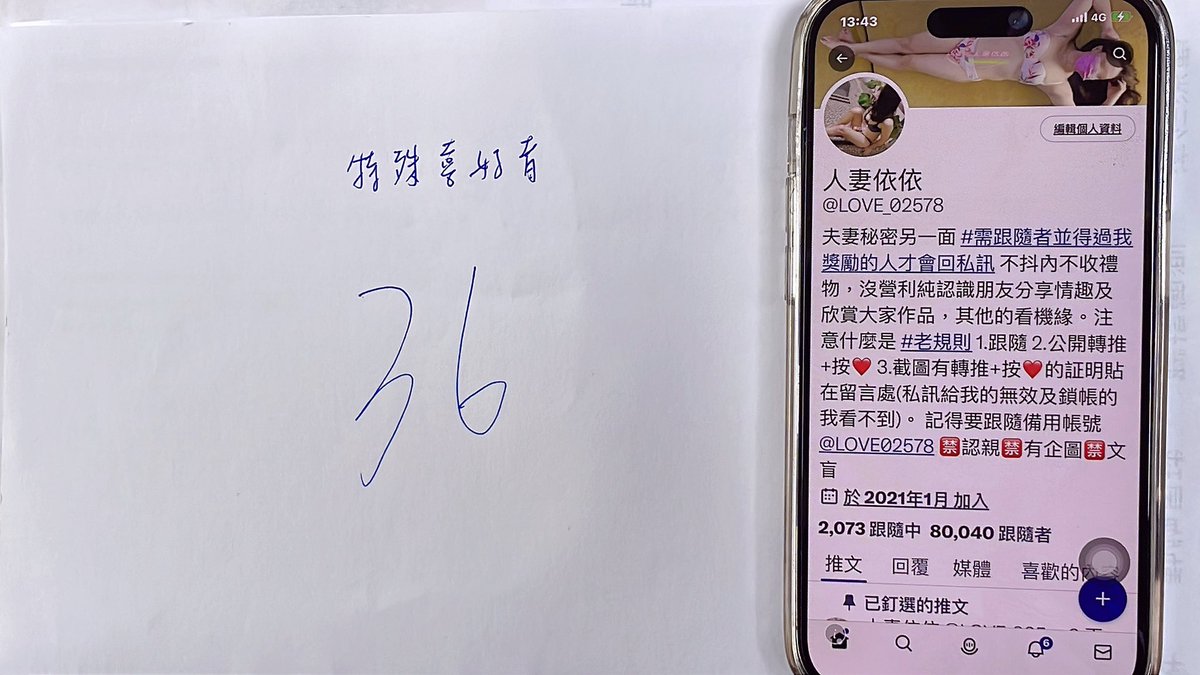 特殊喜好有
36
13:43
4G
編輯個人資料
人妻依依
@LOVE_02578
夫妻秘密另一面 #需跟隨者並得過我
獎勵的人才會回私訊 不抖內不收禮
物，沒營利純認識朋友分享情趣及
欣賞大家作品，其他的看機緣。注
意什麼是 #老規則 1.跟隨 2.公開轉推
+按❤️ 3.截圖有轉推+按❤️的証明貼
在留言處(私訊給我的無效及鎖帳的
我看不到)。 記得要跟隨備用帳號
@LOVE02578 🈲認親🈲有企圖🈲文
盲
於 2021年1月 加入
2,073 跟隨中 80,040 跟隨者
推文 回覆 媒體 喜歡的內
已釘選的推文
6